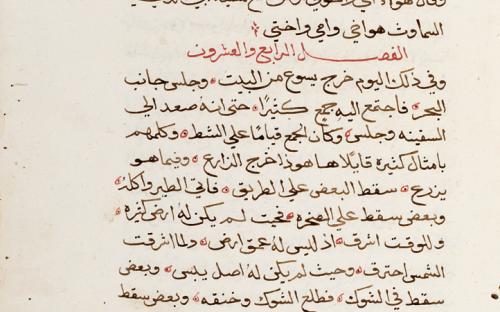 السماوت هو اخي وامي واختي
الفصل الرابع والعشرون
وفي ذلك اليوم خرج يسوع من البيت وجلس جانب
البحر فاجتمع اليه جمع كثيرًا حتى انه صعد الي
السفينه وجلس وكان الجمع قيامًا علي الشط وكلمهم
بامثال كثيرة قايلًا ها هوذا خرج الزارع وفيما هو
يزرع سقط البعض علي الطريق فاتي الطير واكله
وبعض سقط علي الصخره فحيث لم يكن له ارض كثيره
وللوقت اشرق اذ ليس له عمق ارض ولما اشرقت
الشمس احترق وحيث لم يكن له اصل يبس وبعض
سقط في الشوك فطلع الشوك وخنقه وبعض سقط